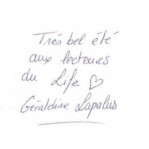 Très bel été
aux lecteurs
du Life ♡
Géraldine Lapalus